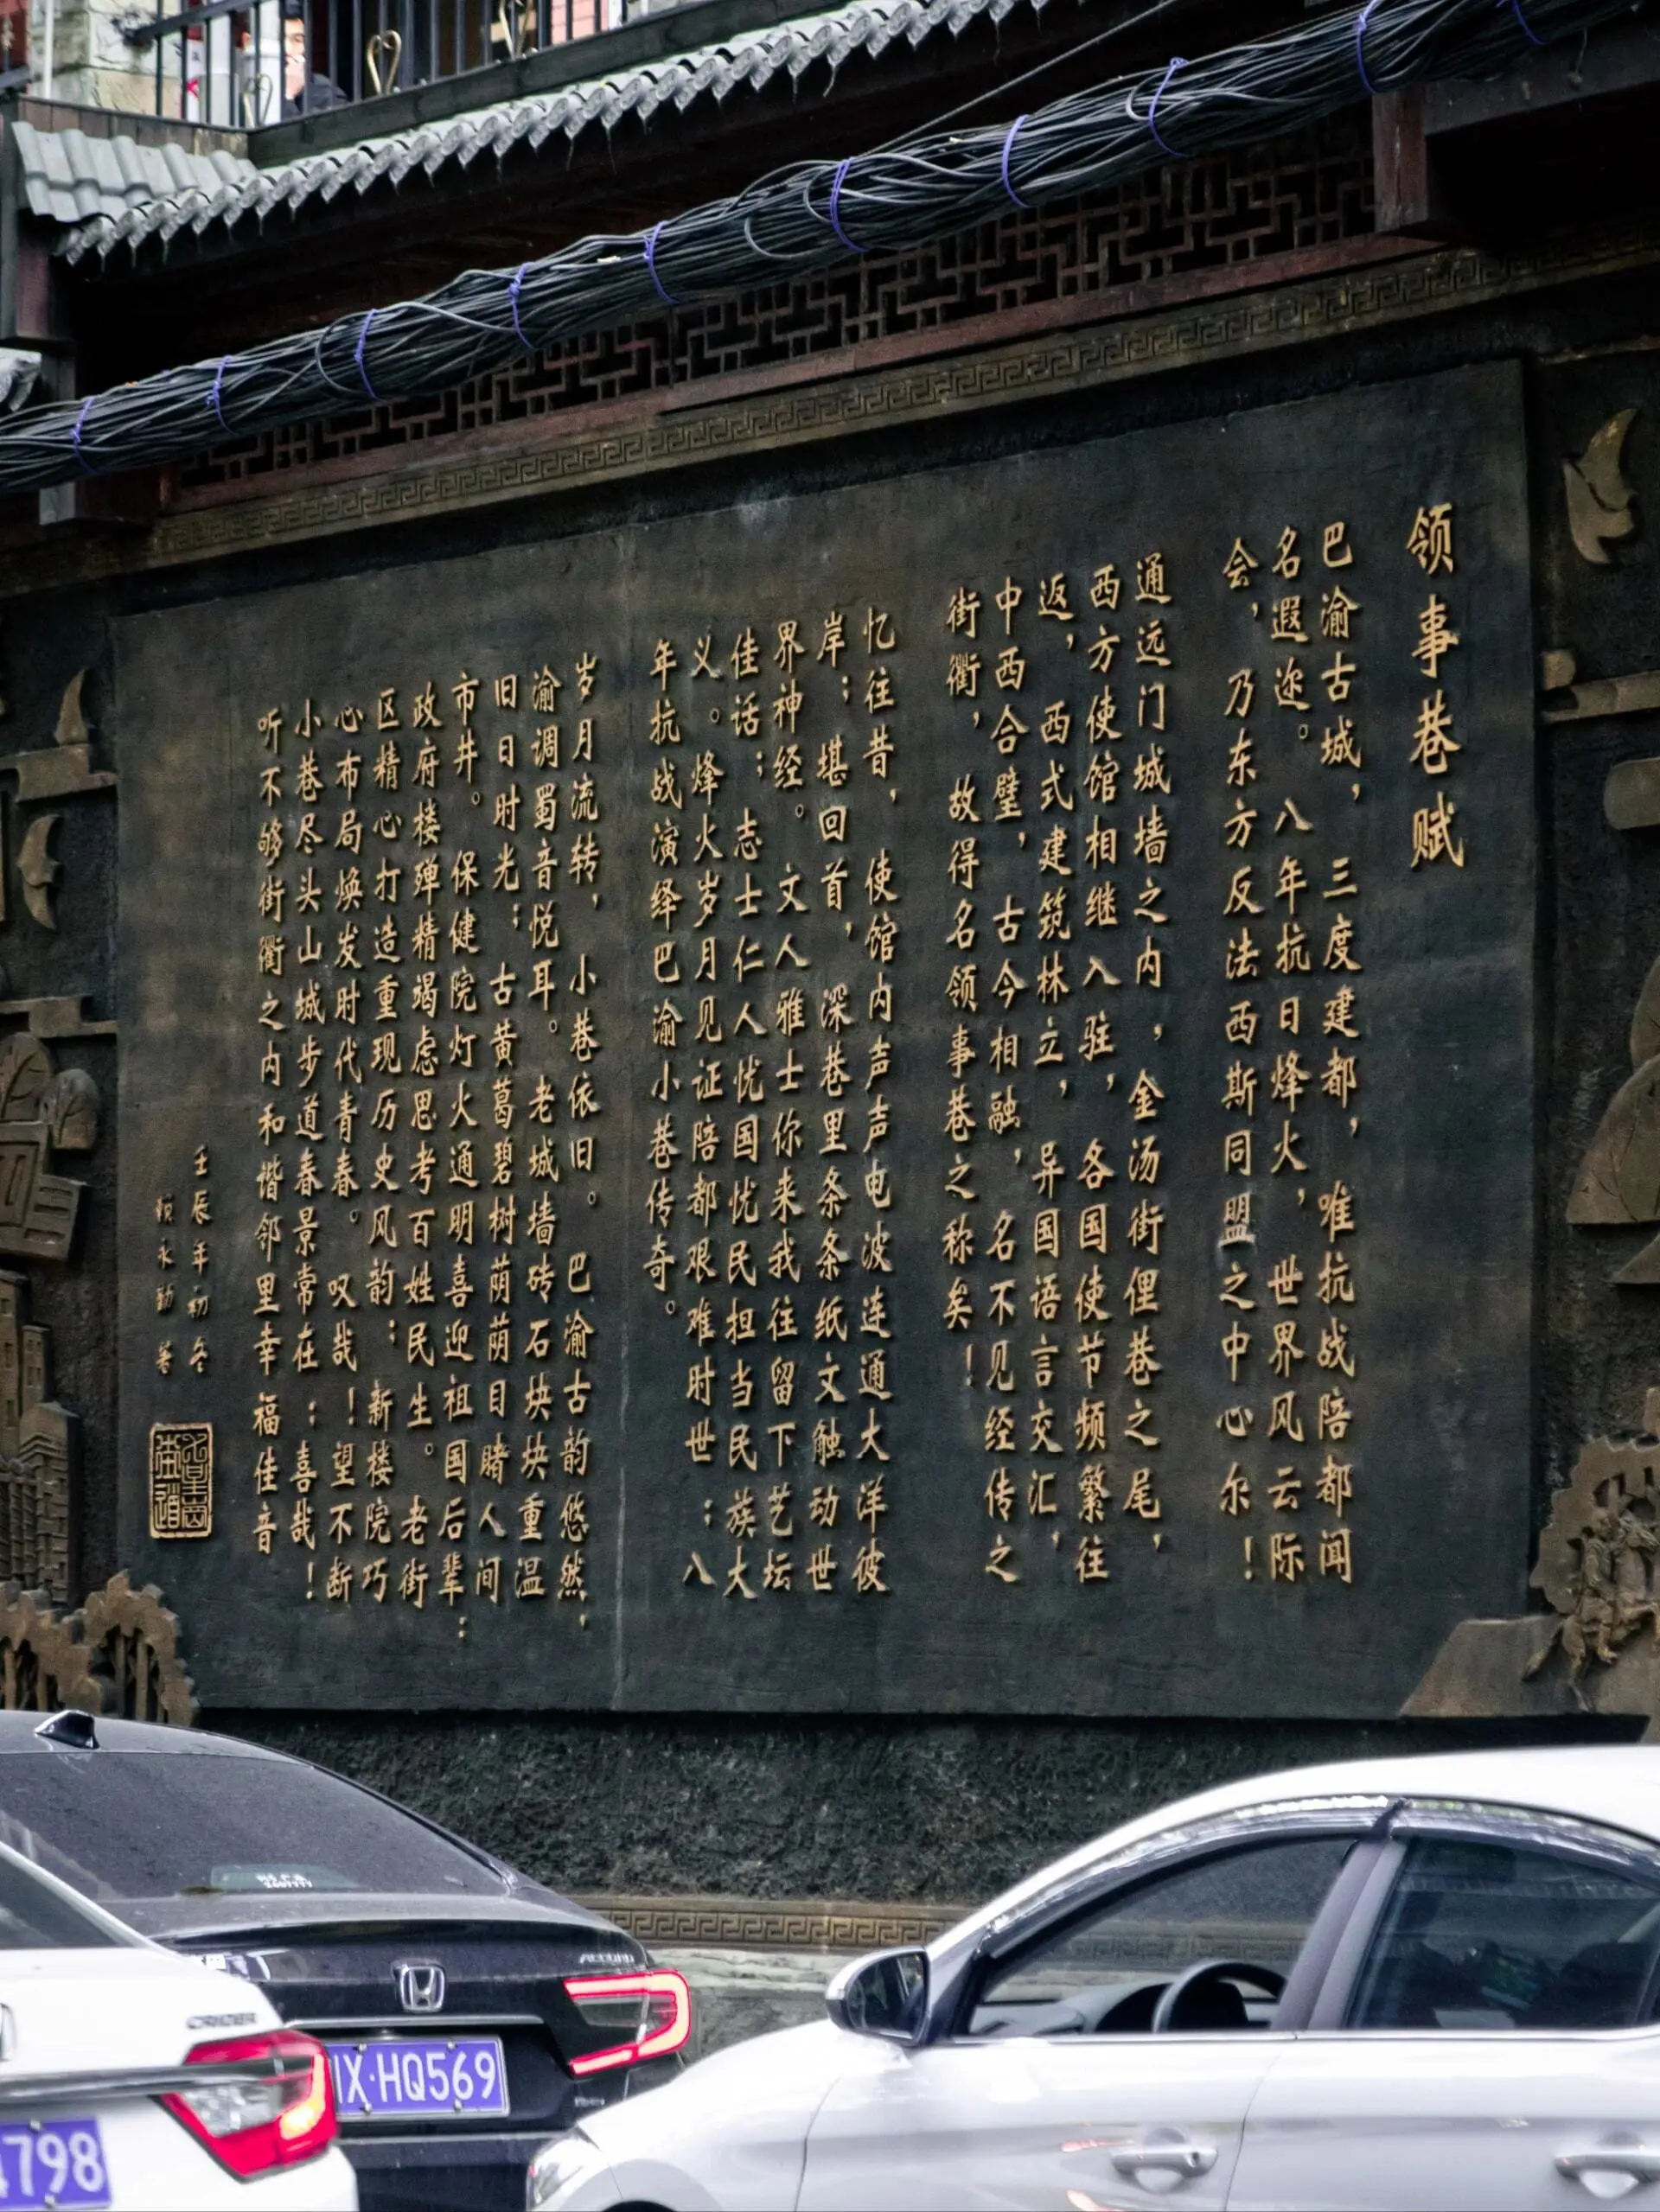 领事巷赋
巴渝古城，三度建都，唯抗战陪都闻
名遐迩。八年抗日烽火，世界风云际
会，乃东方反法西斯同盟之中心尔！
通远门城墙之内，金汤街俚巷之尾，
西方使馆相继入驻，各国使节频繁往
返，西式建筑林立，异国语言交汇，
中西合璧，古今相融，名不见经传之
街衢，故得名领事巷之称矣！
忆往昔，使馆内声声电波连通大洋彼
岸；堪回首，深巷里条条纸文触动世
界神经。文人雅士你来我往留下艺坛
佳话；志士仁人忧国忧民担当民族大
义。烽火岁月见证陪都艰难时世：八
年抗战演绎巴渝小巷传奇。
岁月流转，小巷依旧。巴渝古韵悠然，
渝调蜀音悦耳。老城墙砖石块块重温
旧日时光；古黄葛碧树荫荫目睹人间
市井。保健院灯火通明喜迎祖国后辈：
政府楼殚精竭虑思考百姓民生。老街
区精心打造重现历史风韵：新楼院巧
心布局焕发时代青春。叹哉！望不断
小巷尽头山城步道春景常在：喜哉！
听不够街衢之内和谐邻里幸福佳音
壬辰年初冬
永勤
ACCORD
X·HQ569
CRIDER
798